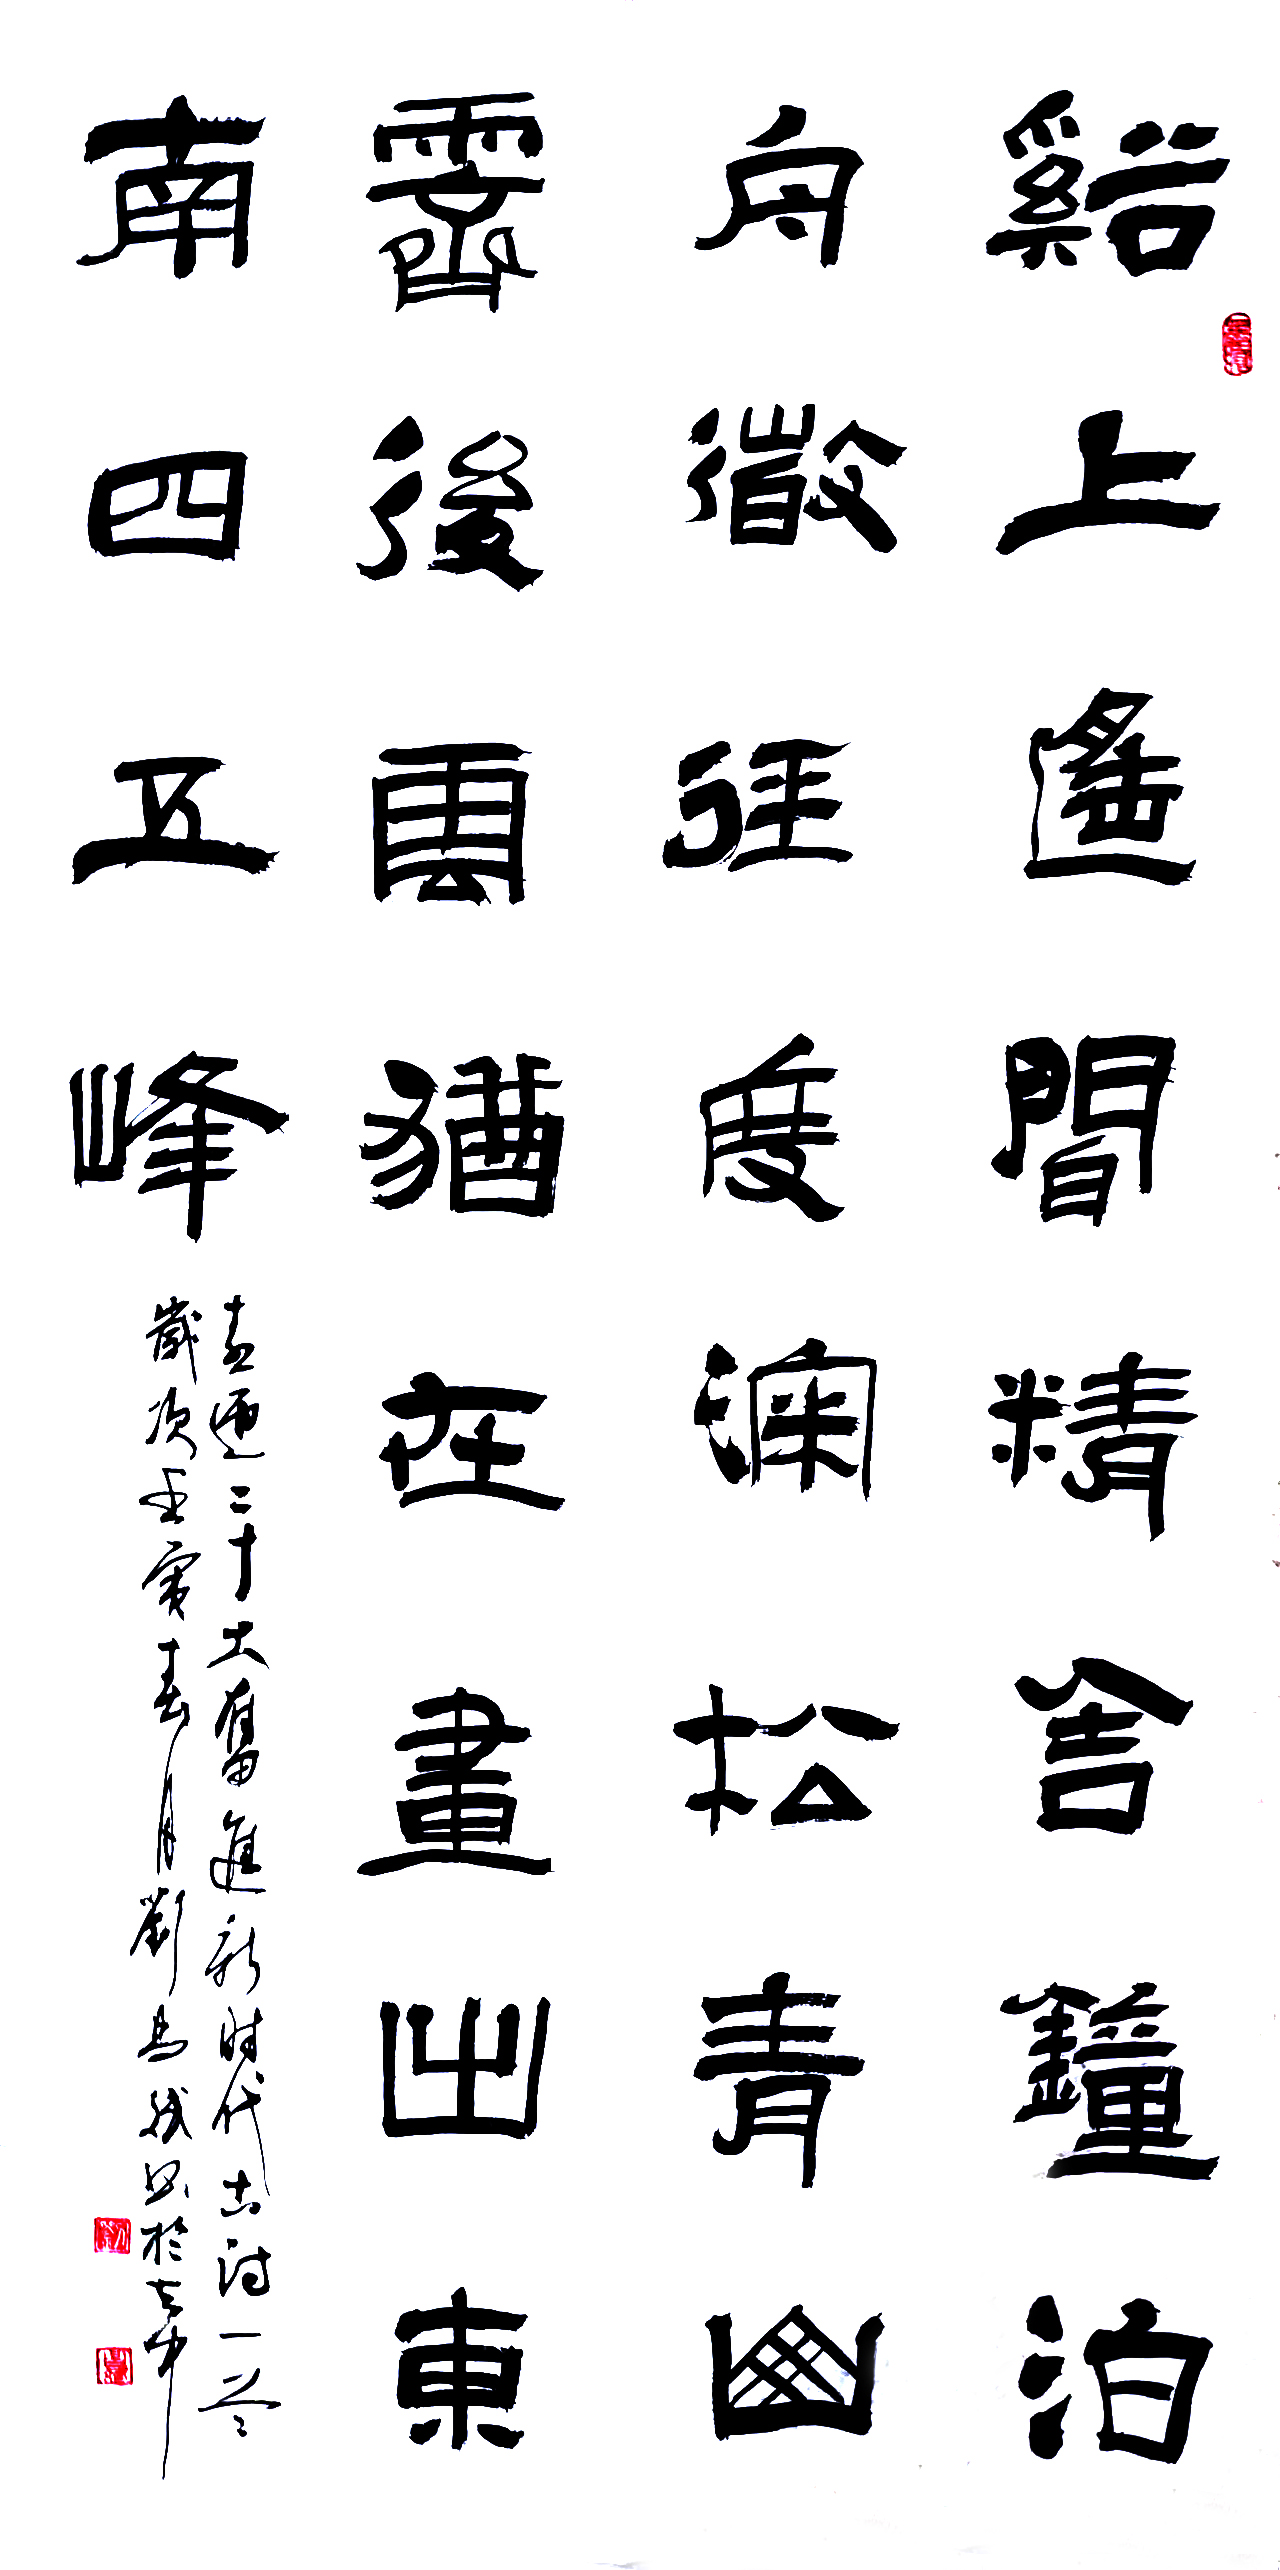 谿上遙聞精舍鐘泊
舟微徑度深松青山
霽後雲猶在畫出東
南四五峰
喜迎二十大奮進新时代古诗一首
歲次壬寅春月劉书於